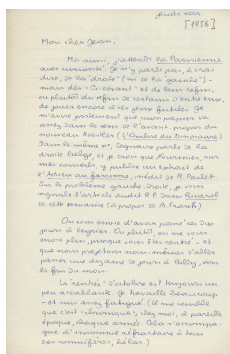 jeudi soir
[1956]
Mon cher Jean,
Moi aussi, j'attends la Parisienne
avec curiosité. Je n'y parle pas, à vrai
dire, de la "droite" (ni de la "gauche") -
mais des "Ci-devant" et de leur refus,
ou plutôt du refus de certains d'entre eux,
de jouer encore à ces jeux futiles. Je
m'avise justement que mon papier va
assez dans le sens de l'avant-propos du
nouveau Koestler (L'Ombre du Dinosaure)
Dans le même n°, Sequaris parle de la
droite belge, et je crois que Fraigneau, sur
mes conseils, y publie un extrait de
l'Adieu au fascisme, inédit de R. Poulet
Sur le problème gauche-droite, je vous
signale l'article d'
de cette semaine (à propos de A. Frank)
On vous envie d'avoir passé ces dix
jours à Veyrier. Ou plutôt, on ne vous
envie plus, puisque vous êtes rentré - et
que nous projetons nous-mêmes d'aller
passer une dizaine de jours à Cailly, vers
la fin du mois.
La "rentrée" d'octobre est toujours un
peu accablante. Je travaille beaucoup
- et suis assez fatigué (il me semble
que c'est "chronique", chez moi, à pareille
époque, chaque année. Cela s'accompa-
gne d'insomnies réfractaires à tous
les somnifères, hélas.)